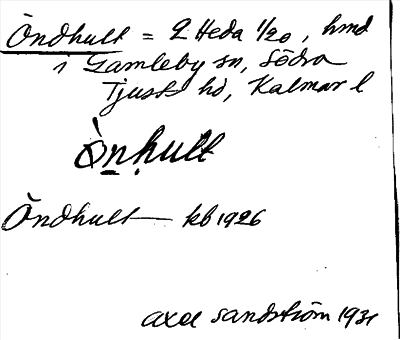 Öndhult = 2 Heda 1/20, hmd
i Gamleby sn, Södra
Tjust hd, Kalmar l
Ö̀n̲ḥult
Öndhult — kb 1926
Axel Sandström 1931